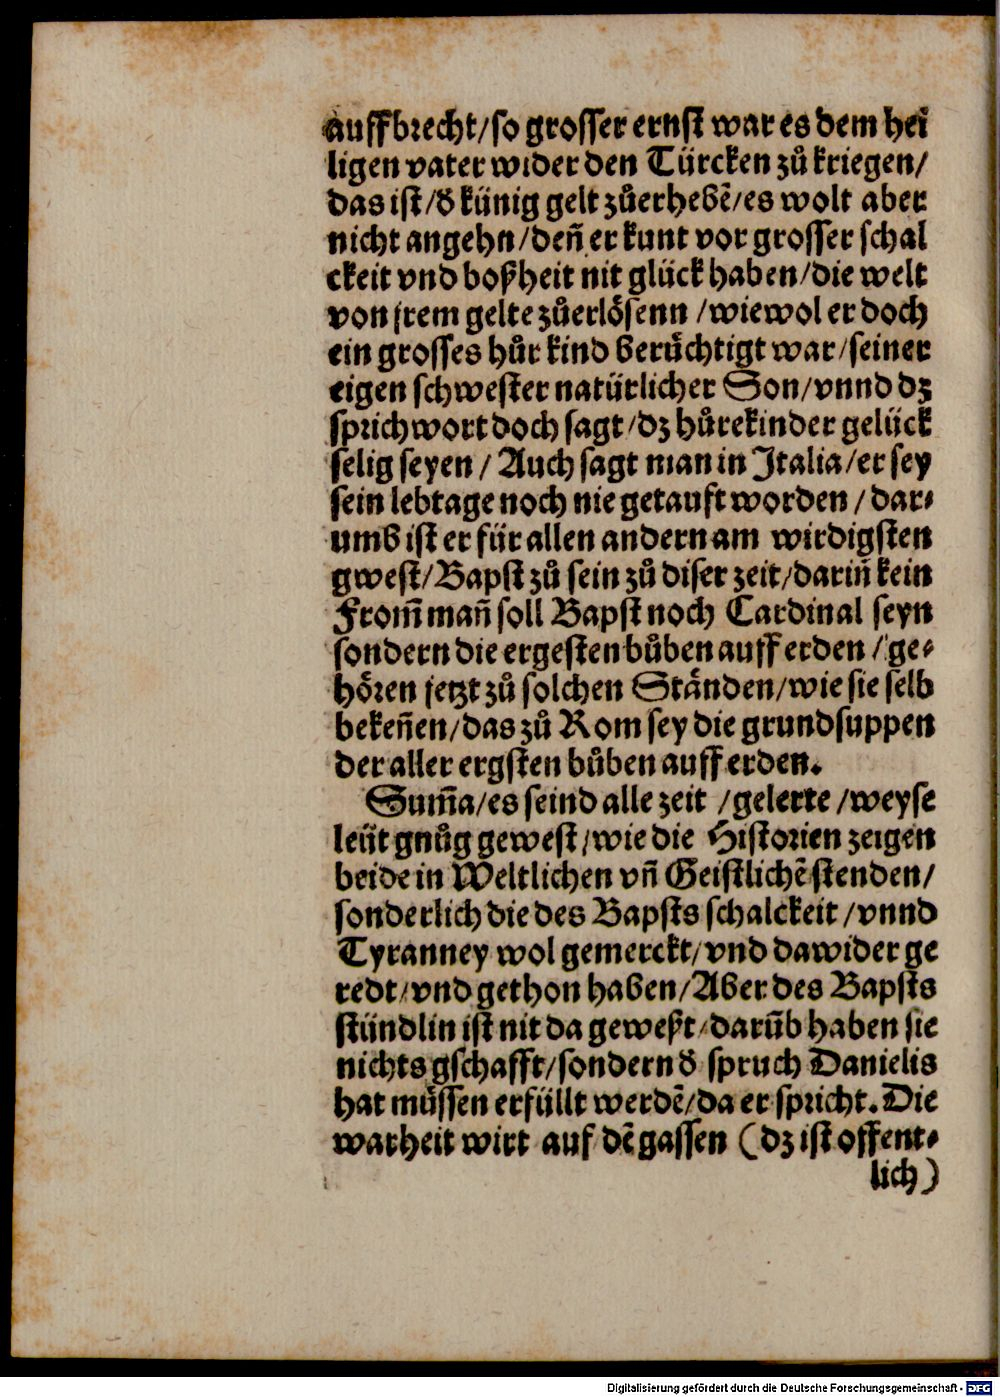 auffbrecht/so grosser ernst war es dem hei
ligen vater wider den Türcken zů kriegen/
das ist/d̕ künig gelt zůerhebē/es wolt aber
nicht angehn/den̄ er kunt vor grosser schal
ckeit vnd boßheit nit glück haben/die welt
von jrem gelte zůerlösenn /wiewol er doch
ein grosses hůr kind berüchtigt war/seiner
eigen schwester natürlicher Son/vnnd dz
sprichwort doch sagt/dz hůrekinder gelück
selig seyen / Auch sagt man in Italia/er sey
sein lebtage noch nie getauft worden / dar⸗
umb ist er für allen andern am wirdigsten
gwest/Bapst zů sein zů diser zeit/darin̄ kein
From̄ man̄ soll Bapst noch Cardinal seyn
sondern die ergesten bůben auff erden / ge⸗
hören jetzt zů solchen Ständen/wie sie selb
beken̄en/das zů Rom sey die grundsuppen
der aller ergsten bůben auff erden.
Sum̄a/es seind alle zeit /gelerte /weyse
leüt gnůg gewest/wie die Historien zeigen
beide in Weltlichen vn̄ Geistlichē stenden/
sonderlich die des Bapsts schalckeit /vnnd
Tyranney wol gemerckt/vnd dawider ge
redt/vnd gethon haben/Aber des Bapsts
stündlin ist nit da geweßt/darūb haben sie
nichts gschafft/sondern d̕ spruch Danielis
hat müssen erfüllt werdē/da er spricht. Die
warheit wirt auf dē gassen (dz ist offent⸗
lich)
Digitalisierung gefördert durch die Deutsche Forschungsgemeinschaft - DFG